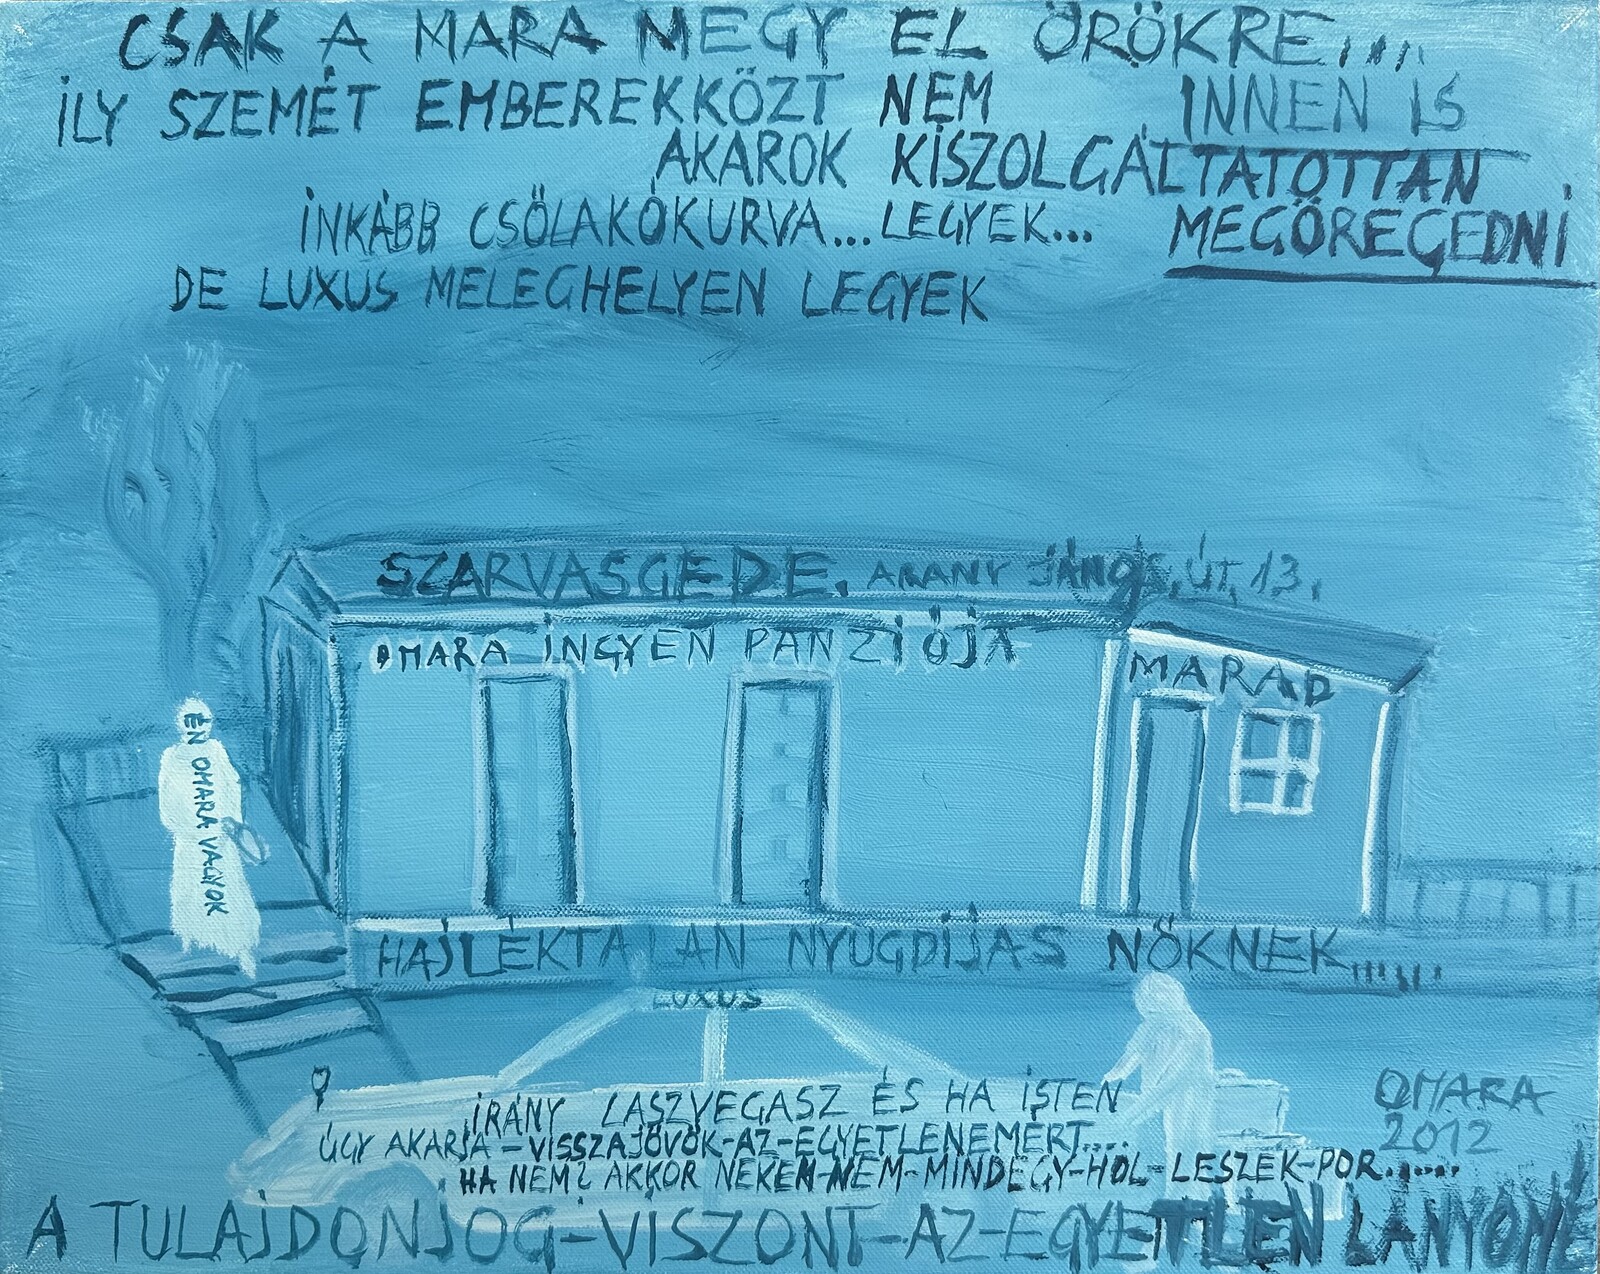 CSAK A MARA MEGY EL ÖRÖKRE....
INNEN IS
ILY SZEMÉT EMBEREKKÖZT NEM
AKAROK KISZOLGÁLTATOTTAN
INKÁBB CSÖLAKÓKURVA... LEGYEK... MEGÖREGEDNI
DE LUXUS MELEGHELYEN LEGYEK
SZARVASGEDE. ARANY JÁNOS, ÚT, 13.
OMARA INGYEN PANZIÓJA
MARAD
ÉN OMARA VAGYOK
HAJLÉKTALAN NYUGDÍJAS NŐKNEK......
LUXUS
IRÁNY LASZVEGASZ ÉS HA ISTEN
ÚGY AKARJA - VISSZAJÖVÖK - AZ - EGYETLENEMÉRT....
HA NEM? AKKOR NEKEM - NEM - MINDEGY - HOL - LESZEK - POR......
OMARA
2012
A TULAJDONJOG - VISZONT - AZ - EGYETLEN LÁNYOMÉ